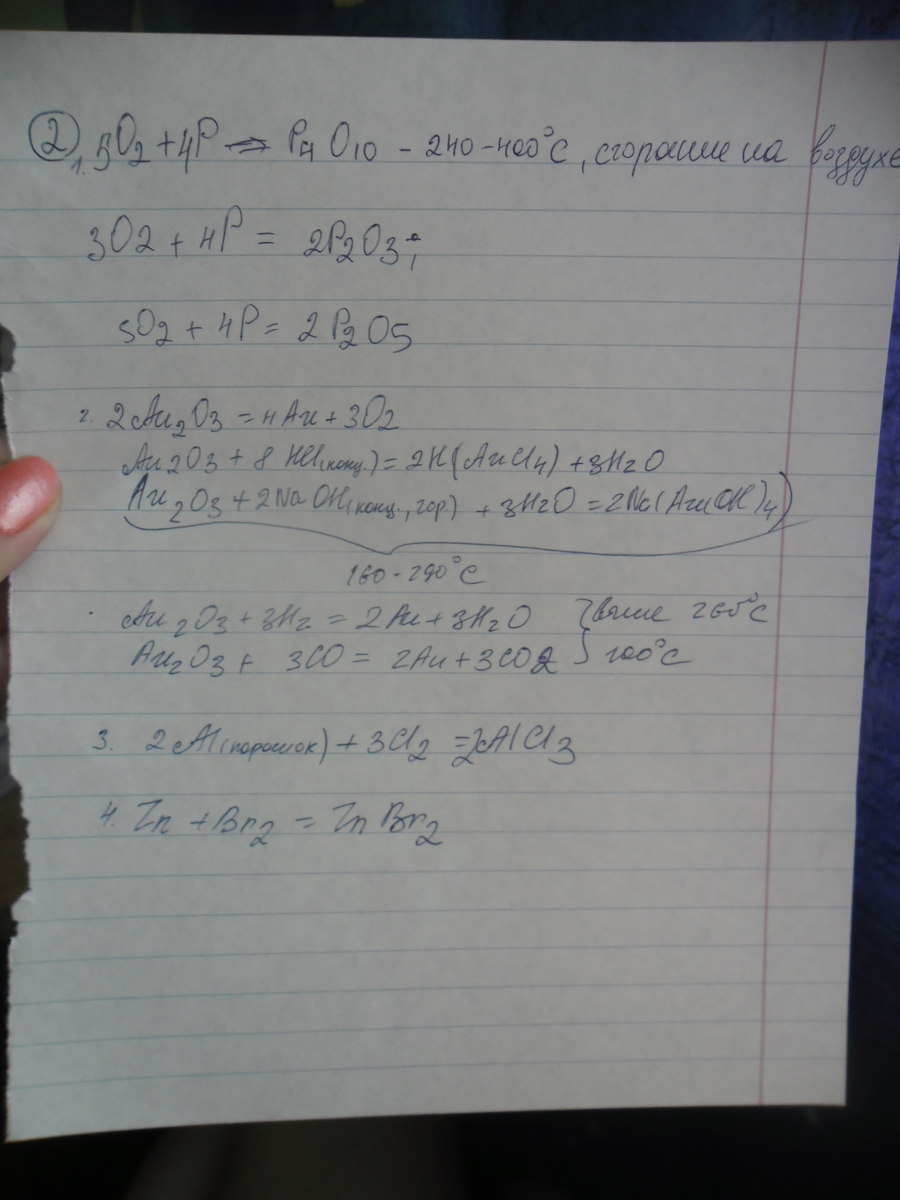 ② 1. 5O₂ + 4P => P₄O₁₀ - 240-400°C, сгорание на воздухе
3O2 + 4P = 2P₂O₃;
5O₂ + 4P = 2P₂O5
2. 2Au₂O₃ = 4Au + 3O₂
Au2O3 + 8HCl(конц.) = 2H(AuCl₄) + 3H₂O
Au₂O₃ + 2NaOH(конц., гор.) + 3H₂O = 2Na(Au(OH)₄)
160-290°C
Au₂O₃ + 3H₂ = 2Au + 3H₂O } выше 260°C
Au₂O₃ + 3CO = 2Au + 3CO2 } 200°C
3. 2Al(порошок) + 3Cl₂ = 2AlCl₃
4. Zn + Br₂ = ZnBr₂